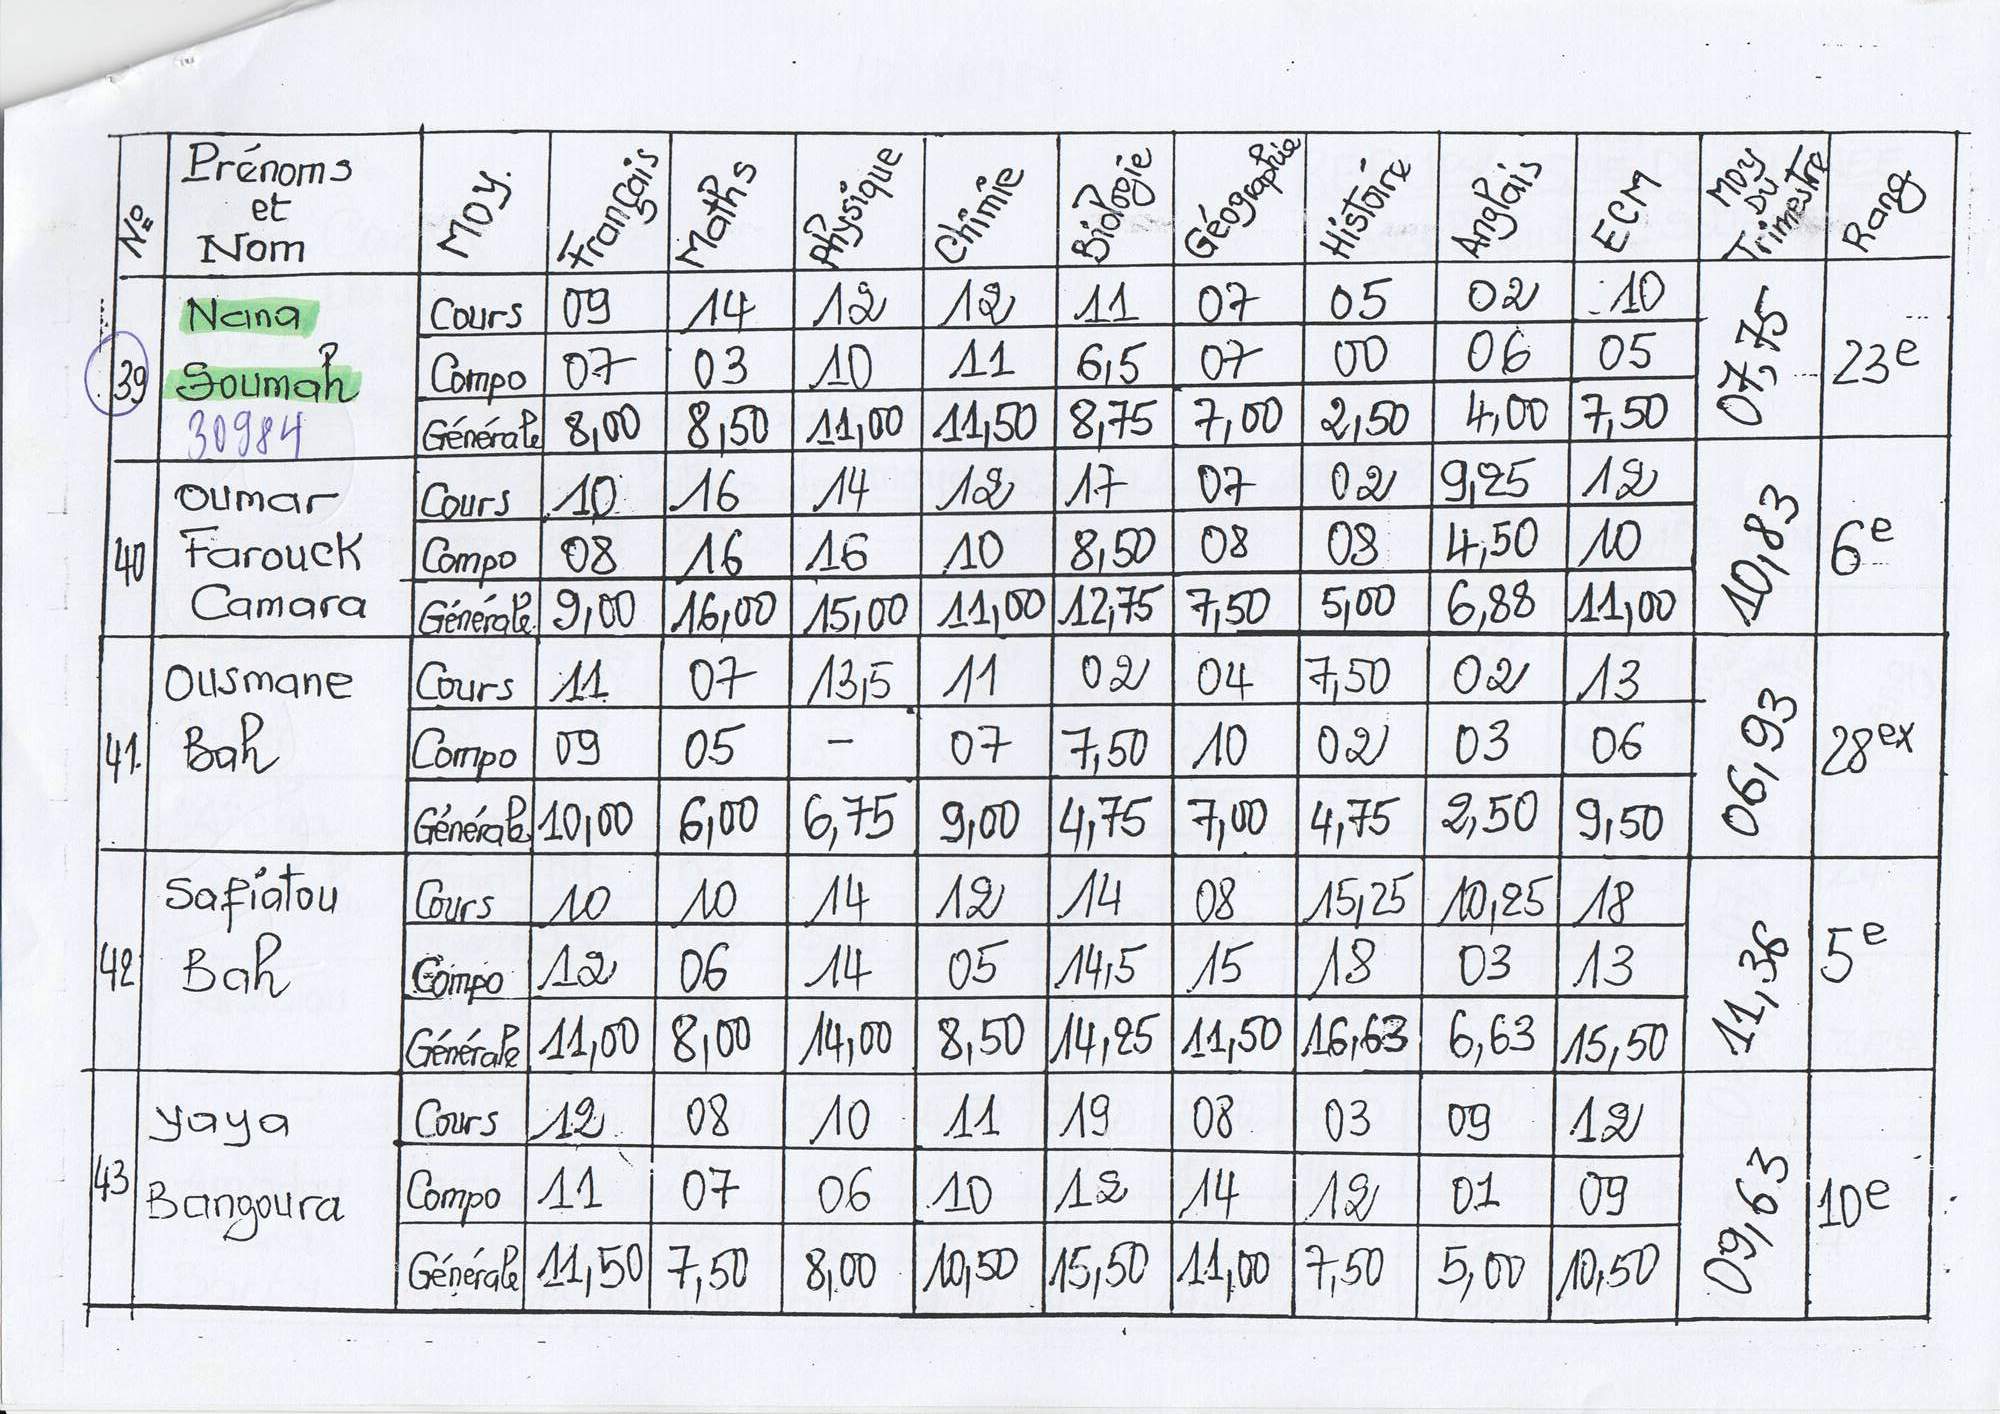 N° Prénoms et Nom MOY. Français Maths Physique Chimie Biologie Géographie Histoire Anglais ECM Moy DU Trimestre Rang
39 Nana Soumah 30984 07,75 23e
Cours 09 14 12 12 11 07 05 02 10
Compo 07 03 10 11 6,5 07 00 06 05
Générale 8,00 8,50 11,00 11,50 8,75 7,00 2,50 4,00 7,50
40 Oumar Farouck Camara 10,83 6e
Cours 10 16 14 12 17 07 02 9,25 12
Compo 08 16 16 10 8,50 08 08 4,50 10
Générale 9,00 16,00 15,00 11,00 12,75 7,50 5,00 6,88 11,00
41. Ousmane Bah 06,93 28ex
Cours 11 07 13,5 11 02 04 7,50 02 13
Compo 09 05 - 07 7,50 10 02 03 06
Générale 10,00 6,00 6,75 9,00 4,75 7,00 4,75 2,50 9,50
42 Safiatou Bah 11,36 5e
Cours 10 10 14 12 14 08 15,25 10,25 18
Compo 12 06 14 05 14,5 15 18 03 13
Générale 11,00 8,00 14,00 8,50 14,25 11,50 16,63 6,63 15,50
43 Yaya Bangoura 09,63 10e
Cours 12 08 10 11 19 08 03 09 12
Compo 11 07 06 10 12 14 12 01 09
Générale 11,50 7,50 8,00 10,50 15,50 11,00 7,50 5,00 10,50